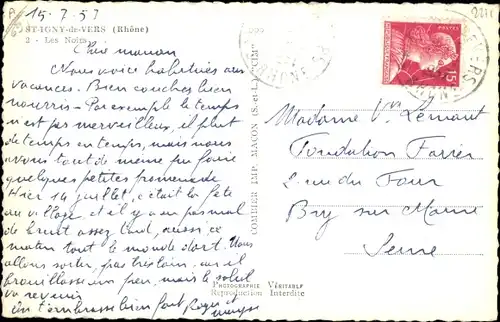 15-7-57
ST-IGNY-de-VERS (Rhône)
2 - Les Noirs
Chère maman
Nous voici habitués aux
vacances. Bien couchés bien
nourris - Par exemple le temps
n'est pas merveilleux, il pleut
de temps en temps, mais nous
avons tout de même pu faire
quelques petites promenades
Hier 14 juillet, c'était la fête
au village, et il y a eu pas mal
de bruit assez tard, aussi ce
matin tout le monde dort. Nous
allons sortir, pas très loin, car il
brouillasse un peu, mais le soleil
va revenir
On t'embrasse bien fort Roger et
COMBIER IMP. MACON (S.-et-L.) "CIM"
PHOTOGRAPHIE VÉRITABLE
Reproduction Interdite
15
Madame Vve Lemant
Fondation Favier
2 rue du Four
Bry sur Marne
Seine